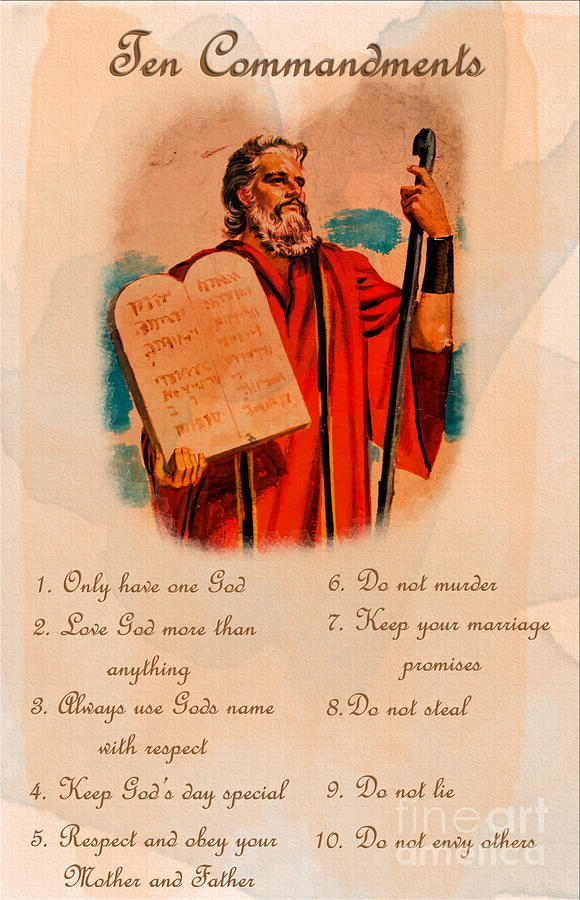 Ten Commandments
1. Only have one God
2. Love God more than
anything
3. Always use Gods name
with respect
4. Keep God's day special
5. Respect and obey your
Mother and Father
6. Do not murder
7. Keep your marriage
promises
8.Do not steal
9. Do not lie
10. Do not envy others
fineart
america